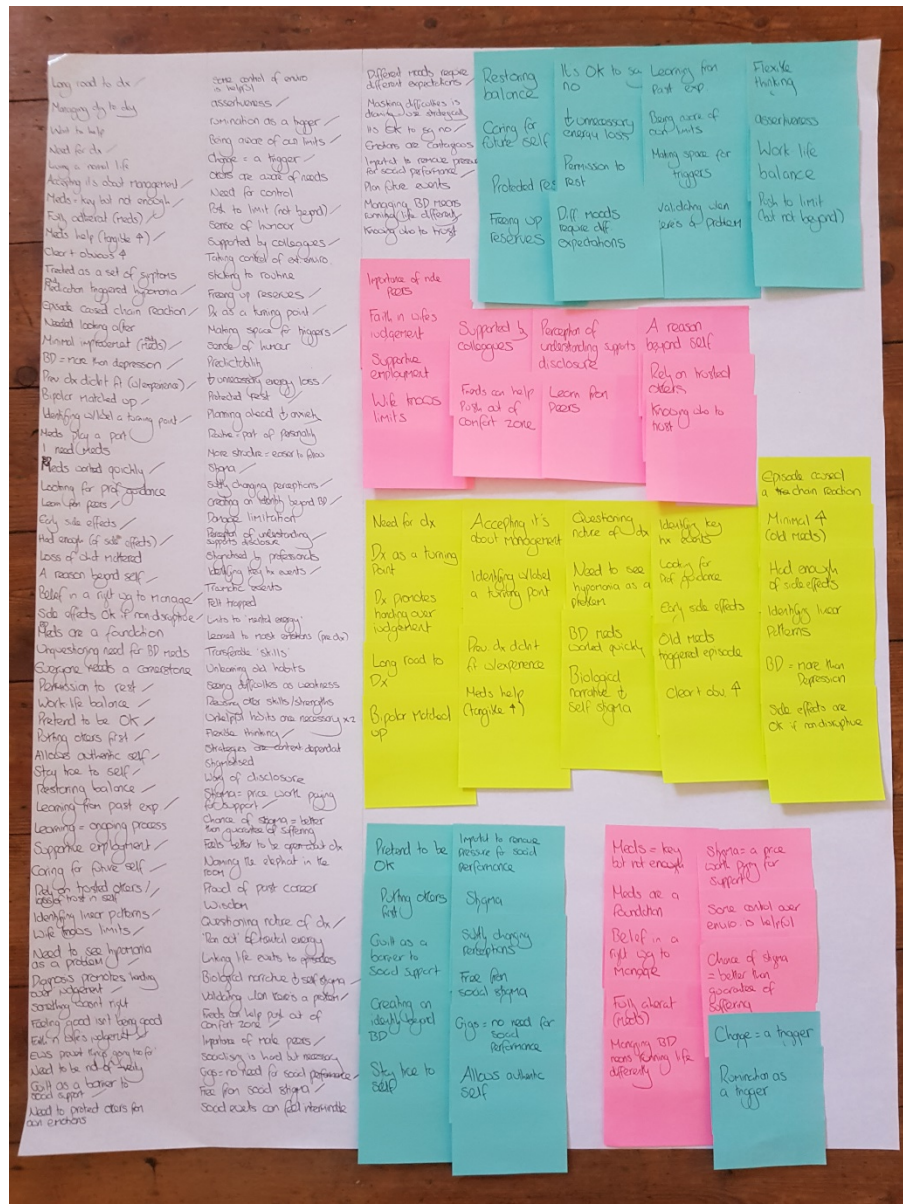 Long road to dx
Managing day to day
Want to help
Need for dx
Living a normal life
Accepting it's about management
Meds = key but not enough
Fully adherent (meds)
Meds help (tangible ↑)
Clear + obvious ↑
Treated as a set of symptoms
Medication triggered hypomania
Episode caused chain reaction
Needed looking after
Minimal improvement (meds)
BD = more than depression
Prev dx didn't fit (w/experience)
Bipolar Matched up
Identifying w/label a turning point
Meds play a part
I need meds
Meds worked quickly
Looking for prof guidance
Learn from peers
Early side effects
Had enough (of side effects)
Loss of
A reason beyond self
Belief in a right way to manage
Side affects Ok if non disruptive
Meds are a foundation
Unquestioning need for BD meds
Everyone needs a cornerstone
Permission to rest
Work life balance
Pretend to be OK
Putting others first
Allows authentic self
Stay true to self
Restoring balance
Learning from past exp
Learning = ongoing process
Supportive employment
Caring for future self
Rely on trusted others /
trust in self
Identifying linear patterns
Wife knows limits
Need to see hypomania
as a problem
Diagnosis promotes handing
over judgement
Something wasn't right
Feeling good isn't being good
Faith in wife's judgement
EWS
Need to be rid of
Guilt as a barrier to
social support
Need to protect others from
own emotions
Some control of enviro
is helpful
assertiveness
rumination as a trigger
Being aware of our limits
Change = a trigger
Others are aware of needs
Need for control
Push to limit (not beyond)
Sense of honour
Supported by colleagues
Taking control of ext enviro
sticking to routine
Freeing up reserves
Dx as a turning point
Making space for triggers
Sense of humour
Predictability
↓ unnecessary energy loss
Protected rest
Planning ahead ↓ anxiety
Routine = part of personality
More structure = easier to follow
Stigma
Subtly changing perceptions
Creating an identity beyond BD
Damage limitation
Perception of understanding
supports disclosure
Stigmatised by professionals
Identifying key hx events
Traumatic events
Felt trapped
Links to 'mental energy'
Learned to mask emotions (pre dx)
Transferable 'skills'
Unlearning old habits
Seeing difficulties as weakness
Focusing other skills/strengths
Unhelpful habits are necessary x2
Flexible thinking
Strategies are context dependent
Stigmatised
Wary of disclosure
Stigma = price worth paying
for support
Chance of stigma = better
than guarantee of suffering
Feels better to be open about dx
Naming the elephant in the
room
Proud of past career
Wisdom
Questioning nature of dx
Ran out of mental energy
Linking life events to episodes
Biological narrative ↓ self stigma
Validating when there's a problem
Friends can help push out of
comfort zone
Importance of male peers
Socialising is hard but necessary
Gigs = no need for social performance
Free from social stigma
Social events can feel interminable
Different moods require
different expectations
Masking difficulties is
Its OK to say no
Emotions are contagious
Important to remove pressure
for social performance
Plan future events
Managing BD means
running life differently
Knowing who to trust
Restoring
balance
Caring for
future self
Protected res
Freeing up
reserves
Its OK to sa
no
↓ unnecessary
energy loss
Permission to
rest
Diff Moods
require diff
expectations
Learning from
Past exp.
Being aware of
our limits
Making space for
triggers
Validating when
theres a problem
Flexible
thinking
assertiveness
Work life
balance
Push to limit
(but not beyond)
Importance of male
Peers
Faith in wife's
judgement
Supportive
employment
Wife knows
limits
Supported by
colleagues
Friends can help
Push out of
comfort zone
Perception of
understanding supports
disclosure
Learn from
Peers
A reason
beyond self
Rely on trusted
others
Knowing who to
trust
Need for dx
Dx as a turning
Point
Dx promotes
handing over
judgement
Long road to
Dx
Bipolar Matched
up
Accepting it's
about Management
Identifying w/label
a turning point
Prev. dx didnt
fit w/experience
Meds help
(tangible ↑)
Questioning
nature of dx
Need to see
hypomania as a
problem
BD meds
worked quickly
Biological
narrative ↓
self stigma
Identifying key
hx events
Looking for
Prof guidance
Early side effects
Old Meds
triggered episode
Clear + obv ↑
Episode caused
a chain reaction
Minimal ↑
(old Meds)
Had enough
of side effects
Identifying linear
Patterns
BD = more than
Depression
Side effects are
OK if non disruptive
Pretend to be
OK
Putting others
first
Guilt as a
barrier to
social support
Creating an
identity beyond
BD
Stay true to
self
Imptnt to remove
pressure for social
performance
Stigma
Subtly changing
perceptions
Free from
social stigma
Gigs = no need for
social
Performance
Allows authentic
self
Meds = key
but not enough
Meds are a
Foundation
Belief in a
right way to
Manage
Fully adherent
(Meds)
Managing BD
means running life
differently
Stigma = a price
worth paying for
support
Some control over
enviro is helpful
Chance of stigma
= better than
guarantee of
suffering
Change = a trigger
Rumination as
a trigger